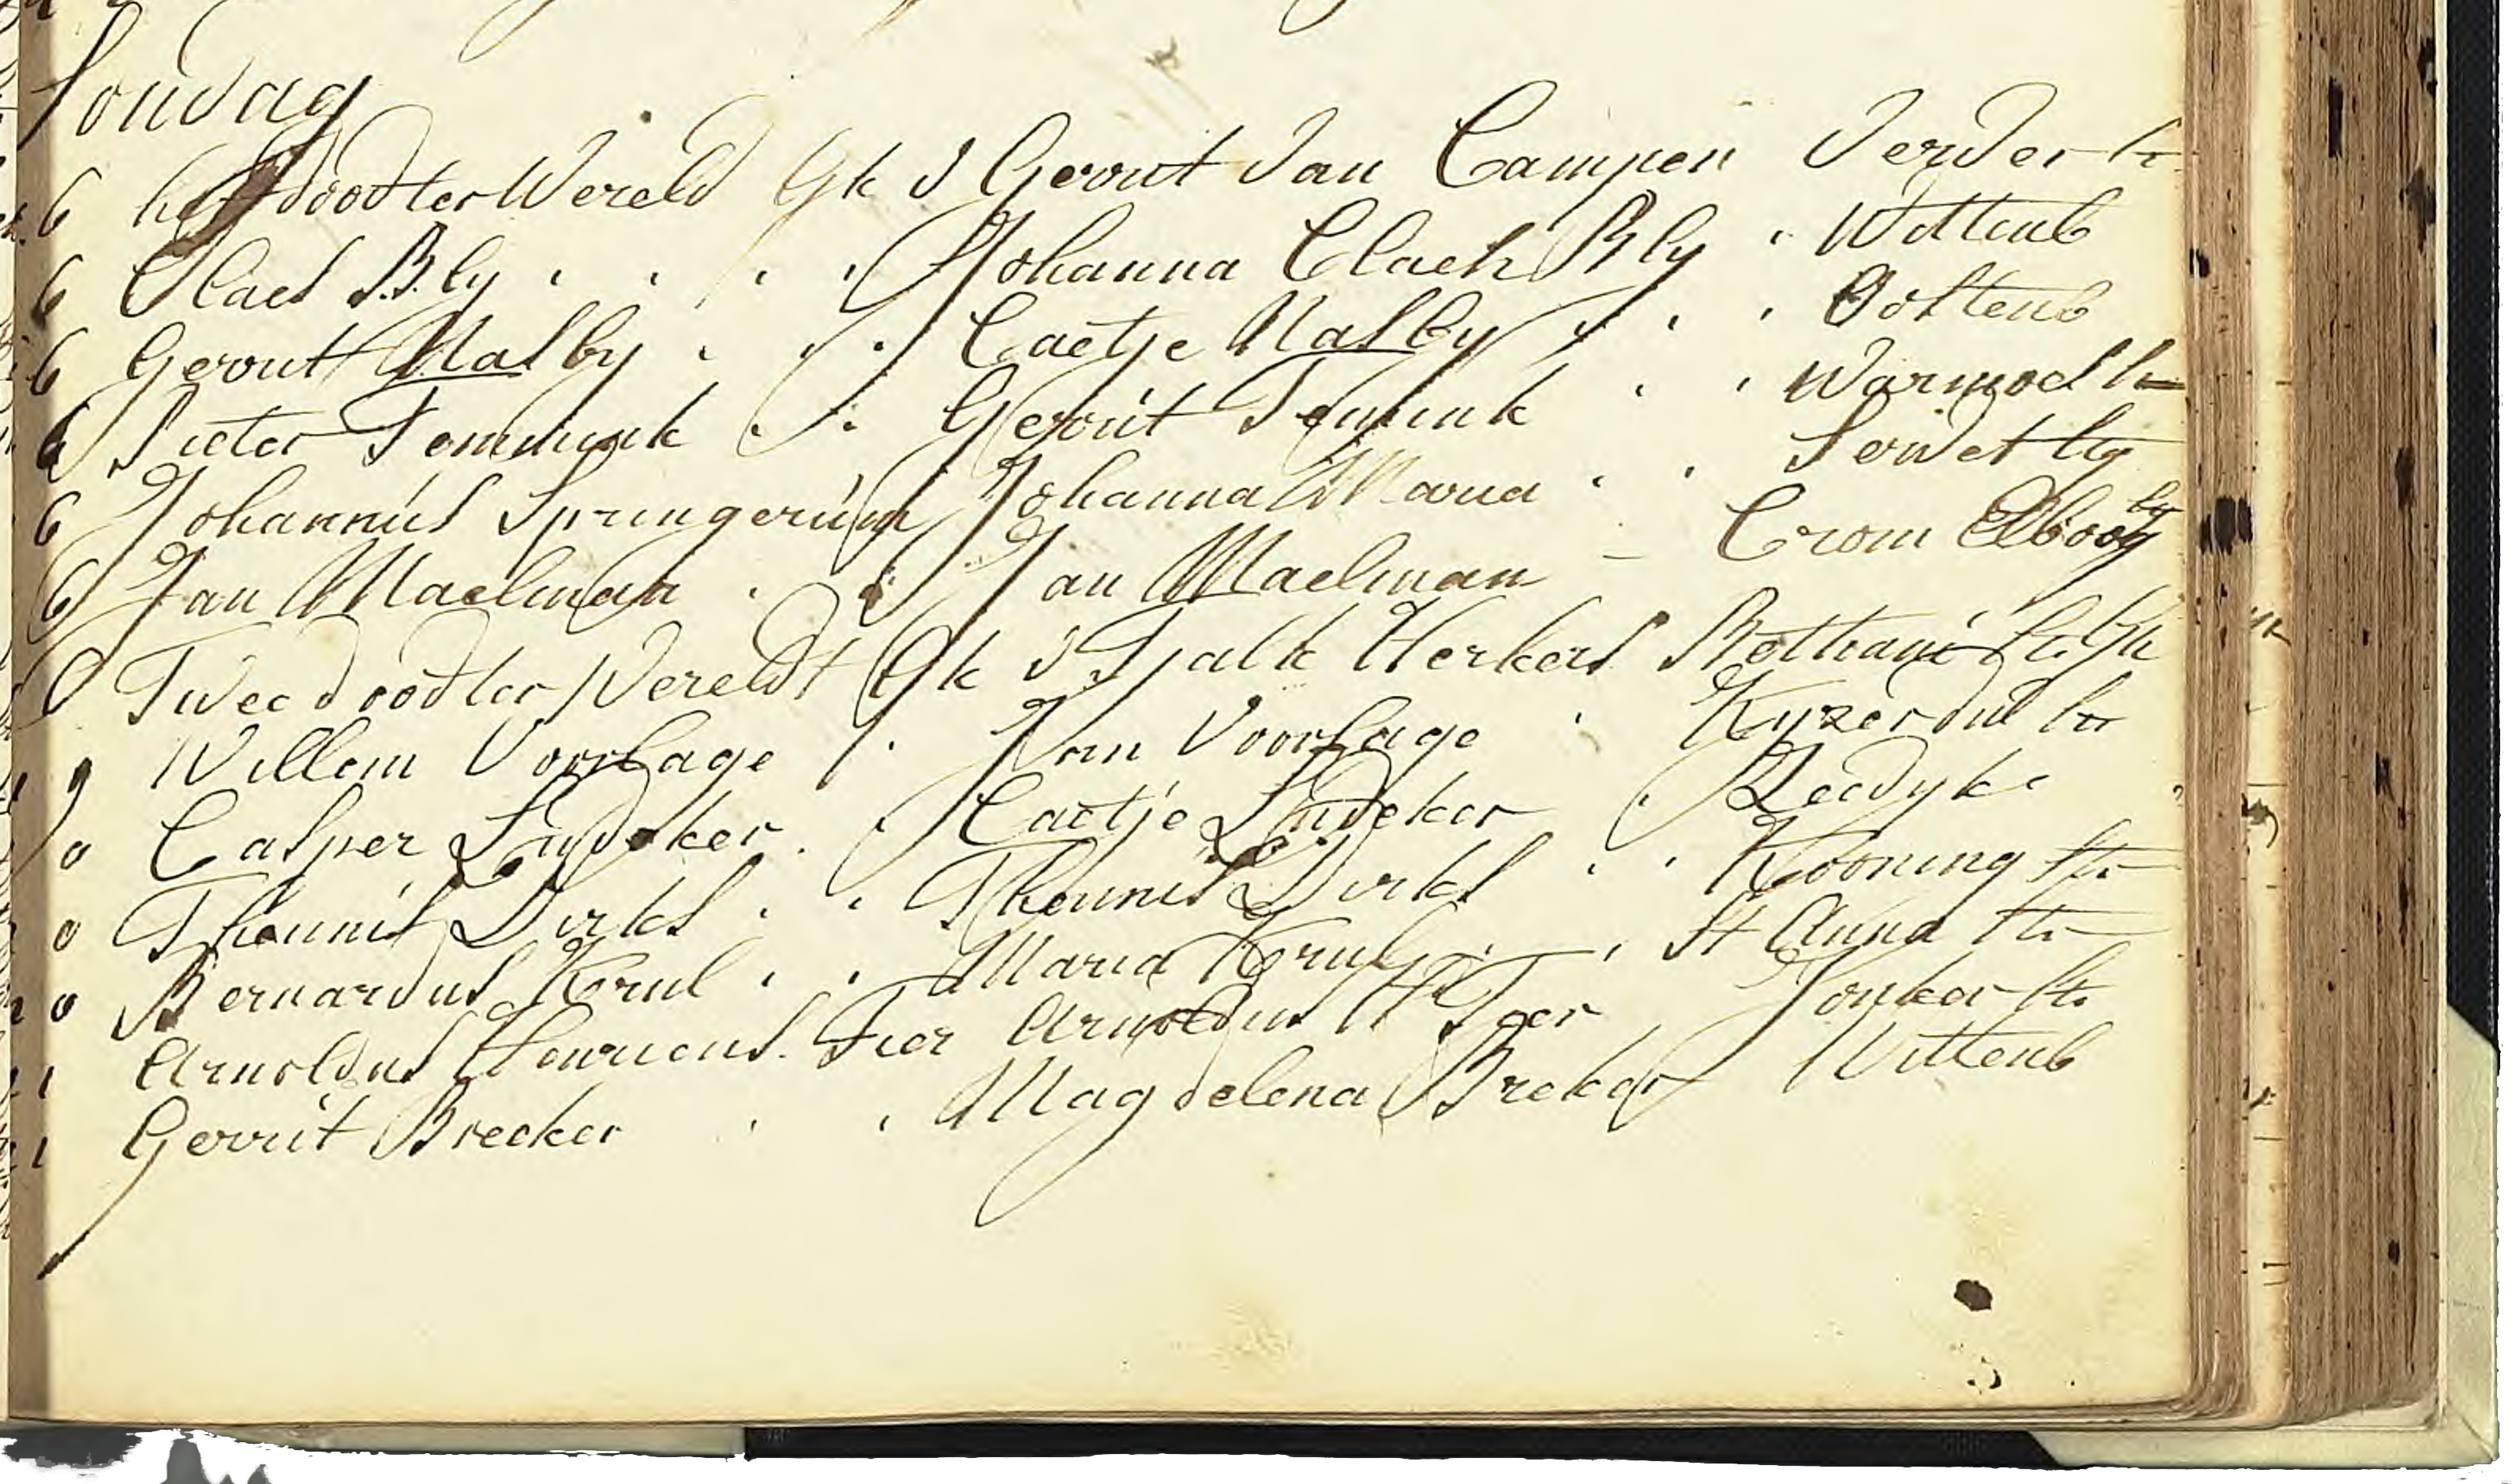 Sondag
6 het dood ter Wereld Gk v Gerrit Van Campen Verver st
6 Claes Bly Johanna Claes Bly Wittenb
6 Gerrit Nalby Caetje Nalby Oostenb
6 Pieter Temmink Gerrit Temink Warmoes st
6 Johannis Springerum Johanna Maria Servet stg
6 Jan Maelman Jan Maelman Crom Elboog stg
0 Twee dood ter Wereldt Gk v Tjalk Herkers Bethanie st
9 Willem Voorhage Jan Voorhage Kyzer
0 Casper Ludeker Caetje Ludeker Zeedyk
0 Theunis Dirks Theunis Dirks Kooning str
0 Bernardus Krul Maria Krul St Anna str
11 Arnoldus Henricus Fier Arnoldus H Jonker str
11 Gerrit Brecker Magdelena Breker Wittenb